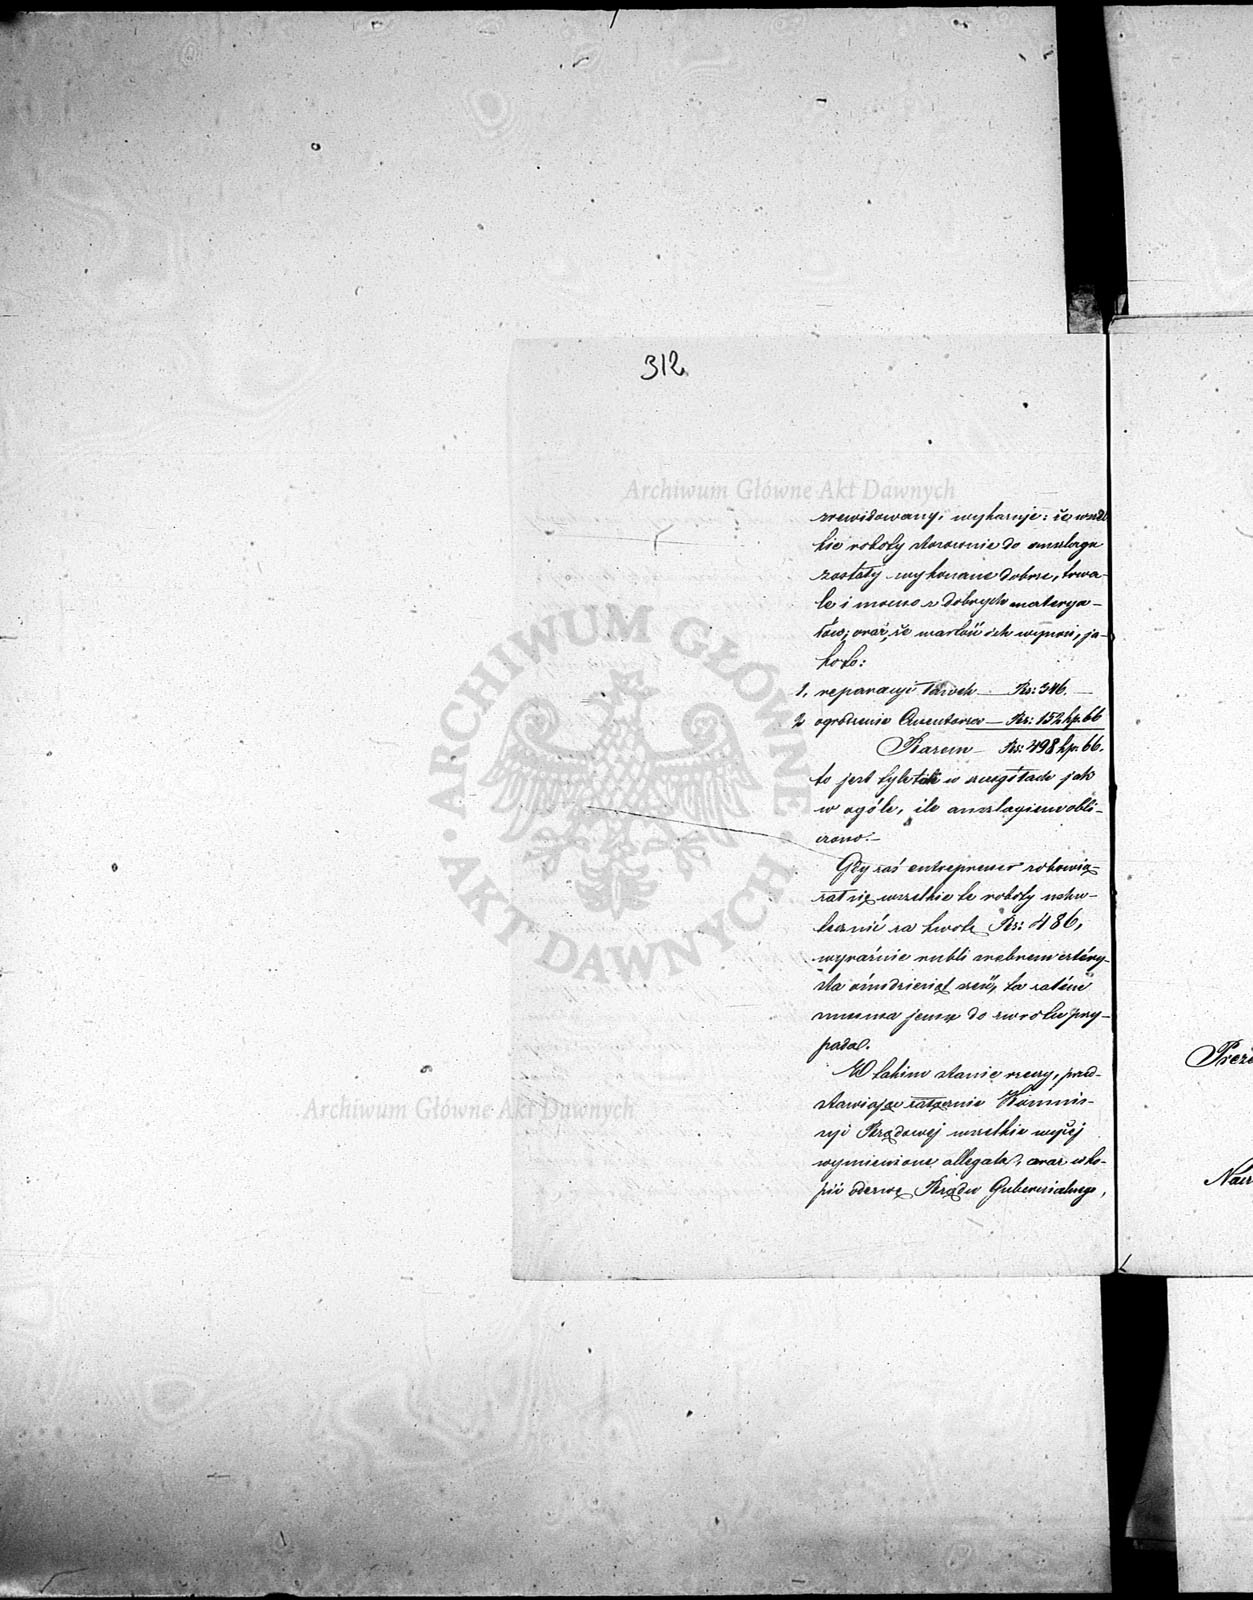 312
Archiwum Główne Akt Dawnych
zrewidowany, wykazuje: że wszel
kie roboty stosownie do anszlagu
zostały wykonane dobrze, trwa-
le i mocno z dobrych materya-
łów; oraz, że wartość ich wynosi, ja-
koto:
1. reparacyi Rs: 346.
2 ogrodzenie Cmentarza — Rs: 152 kp. 66
Razem — Rs: 498 kp. 66.
to jest tyle tak w szczegółach jak
w ogóle, ile anszlagiem obli-
czono.—
Gdy zaś entrepreneur zobowią-
zał się wszelkie te roboty usku-
tecznić za kwotę Rs: 486,
wyraźnie rubli srebrem cztéry-
sta ośmdziesiąt sześć, ta zatém
summa jemu do zwrotu przy-
pada.
W takim stanie rzeczy, przed-
stawiając załącznie Kommis-
syi Rządowej wszelkie wyżej
wymienione allegata, oraz w ko-
pii odezwę Rządu Gubernialnego,
ARCHIWUM GŁÓWNE · AKT DAWNYCH ·
Archiwum Główne Akt Dawnych